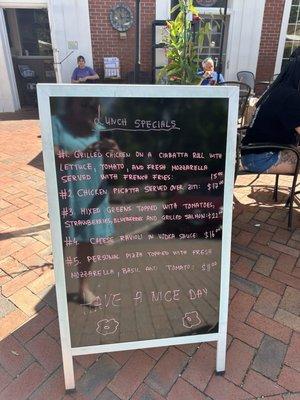 LUNCH SPECIALS
#1. GRILLED CHICKEN ON A CIABATTA ROLL WITH
LETTUCE, TOMATO, AND FRESH MOZZARELLA
SERVED WITH FRENCH FRIES. 15.00
#2. CHICKEN PICATTA SERVED OVER ZITI:
#3. MIXED GREENS TOPPED WITH TOMATOES,
STRAWBERRIES, BLUEBERRIES AND GRILLED SALMON:
#4. CHEESE RAVIOLI IN VODKA SAUCE: $16.00
#5. PERSONAL PIZZA TOPPED WITH FRESH
MOZZARELLA, BASIL AND TOMATO:
HAVE A NICE DAY